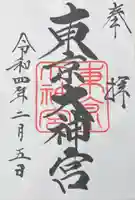 奉拝
東京大神宮
東京大神宮
令和四年二月五日